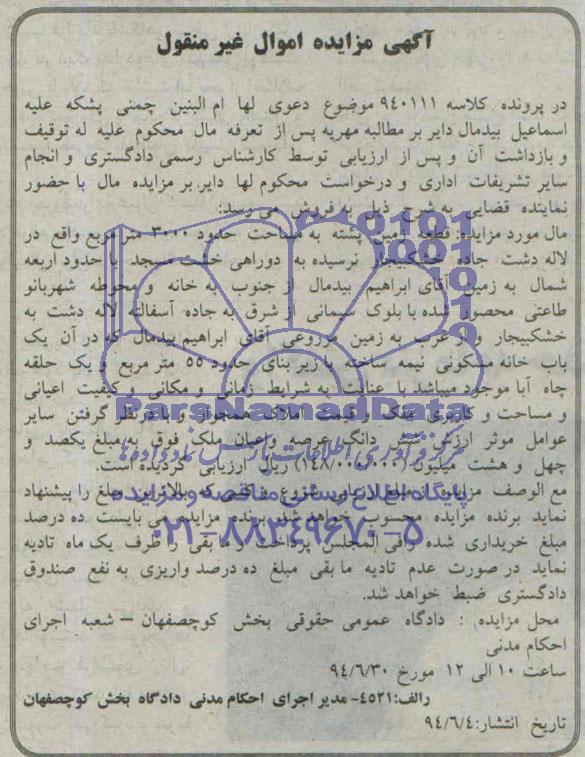 آگهی مزایده اموال غیر منقول
در پرونده کلاسه ۹۴۰۱۱۱ موضوع دعوی لها ام البنین چمنی پشکه علیه
اسماعیل بیدمال دایر بر مطالبه مهریه پس از تعرفه مال محکوم علیه له توقیف
و بازداشت آن و پس از ارزیابی توسط کارشناس رسمی دادگستری و انجام
سایر تشریفات اداری و درخواست محکوم لها دایر بر مزایده مال با حضور
نماینده قضایی به شرح ذیل به فروش می رسد:
مال مورد مزایده: قطعه زمین پشته به مساحت حدود ۳۰۰۰ متر مربع واقع در
لاله دشت جاده خشکبیجار نرسیده به دوراهی خشت مسجد با حدود اربعه
شمال به زمین آقای ابراهیم بیدمال از جنوب به خانه و محوطه شهربانو
طاعتی محصور شده با بلوک سیمانی از شرق به جاده آسفالته لاله دشت به
خشکبیجار و از غرب به زمین مزروعی آقای ابراهیم بیدمال که در آن یک
باب خانه مسکونی نیمه ساخته با زیر بنای حدود ۵۵ متر مربع و یک حلقه
چاه آبا موجود میباشد با عنایت به شرایط زمانی و مکانی و کیفیت اعیانی
و مساحت و کاربری ملک و قیمت املاک همجوار و با در نظر گرفتن سایر
عوامل موثر ارزش شش دانگ عرصه و اعیان ملک فوق به مبلغ یکصد و
چهل و هشت میلیون (۱۴۸/۰۰۰/۰۰۰) ریال ارزیابی گردیده است.
مع الوصف مزایده از مبلغ ارزیابی شروع و کسی که بالاترین مبلغ را پیشنهاد
نماید برنده مزایده محسوب خواهد شد. برنده مزایده می بایست ده درصد
مبلغ خریداری شده را فی المجلس پرداخت و ما بقی را ظرف یک ماه تادیه
نماید در صورت عدم تادیه ما بقی مبلغ ده درصد واریزی به نفع صندوق
دادگستری ضبط خواهد شد.
محل مزایده : دادگاه عمومی حقوقی بخش کوچصفهان – شعبه اجرای
احکام مدنی
ساعت ۱۰ الی ۱۲ مورخ ۹۴/۶/۳۰
رالف: ۴۵۲۱- مدیر اجرای احکام مدنی دادگاه بخش کوچصفهان
تاریخ انتشار: ۹۴/۶/۴
ParsNamadData
مرکز فرآوری اطلاعات پارس نماد داده ها
پایگاه اطلاع رسانی مناقصه و مزایده
۰۲۱-۸۸۳۴۹۶۷۰-۵